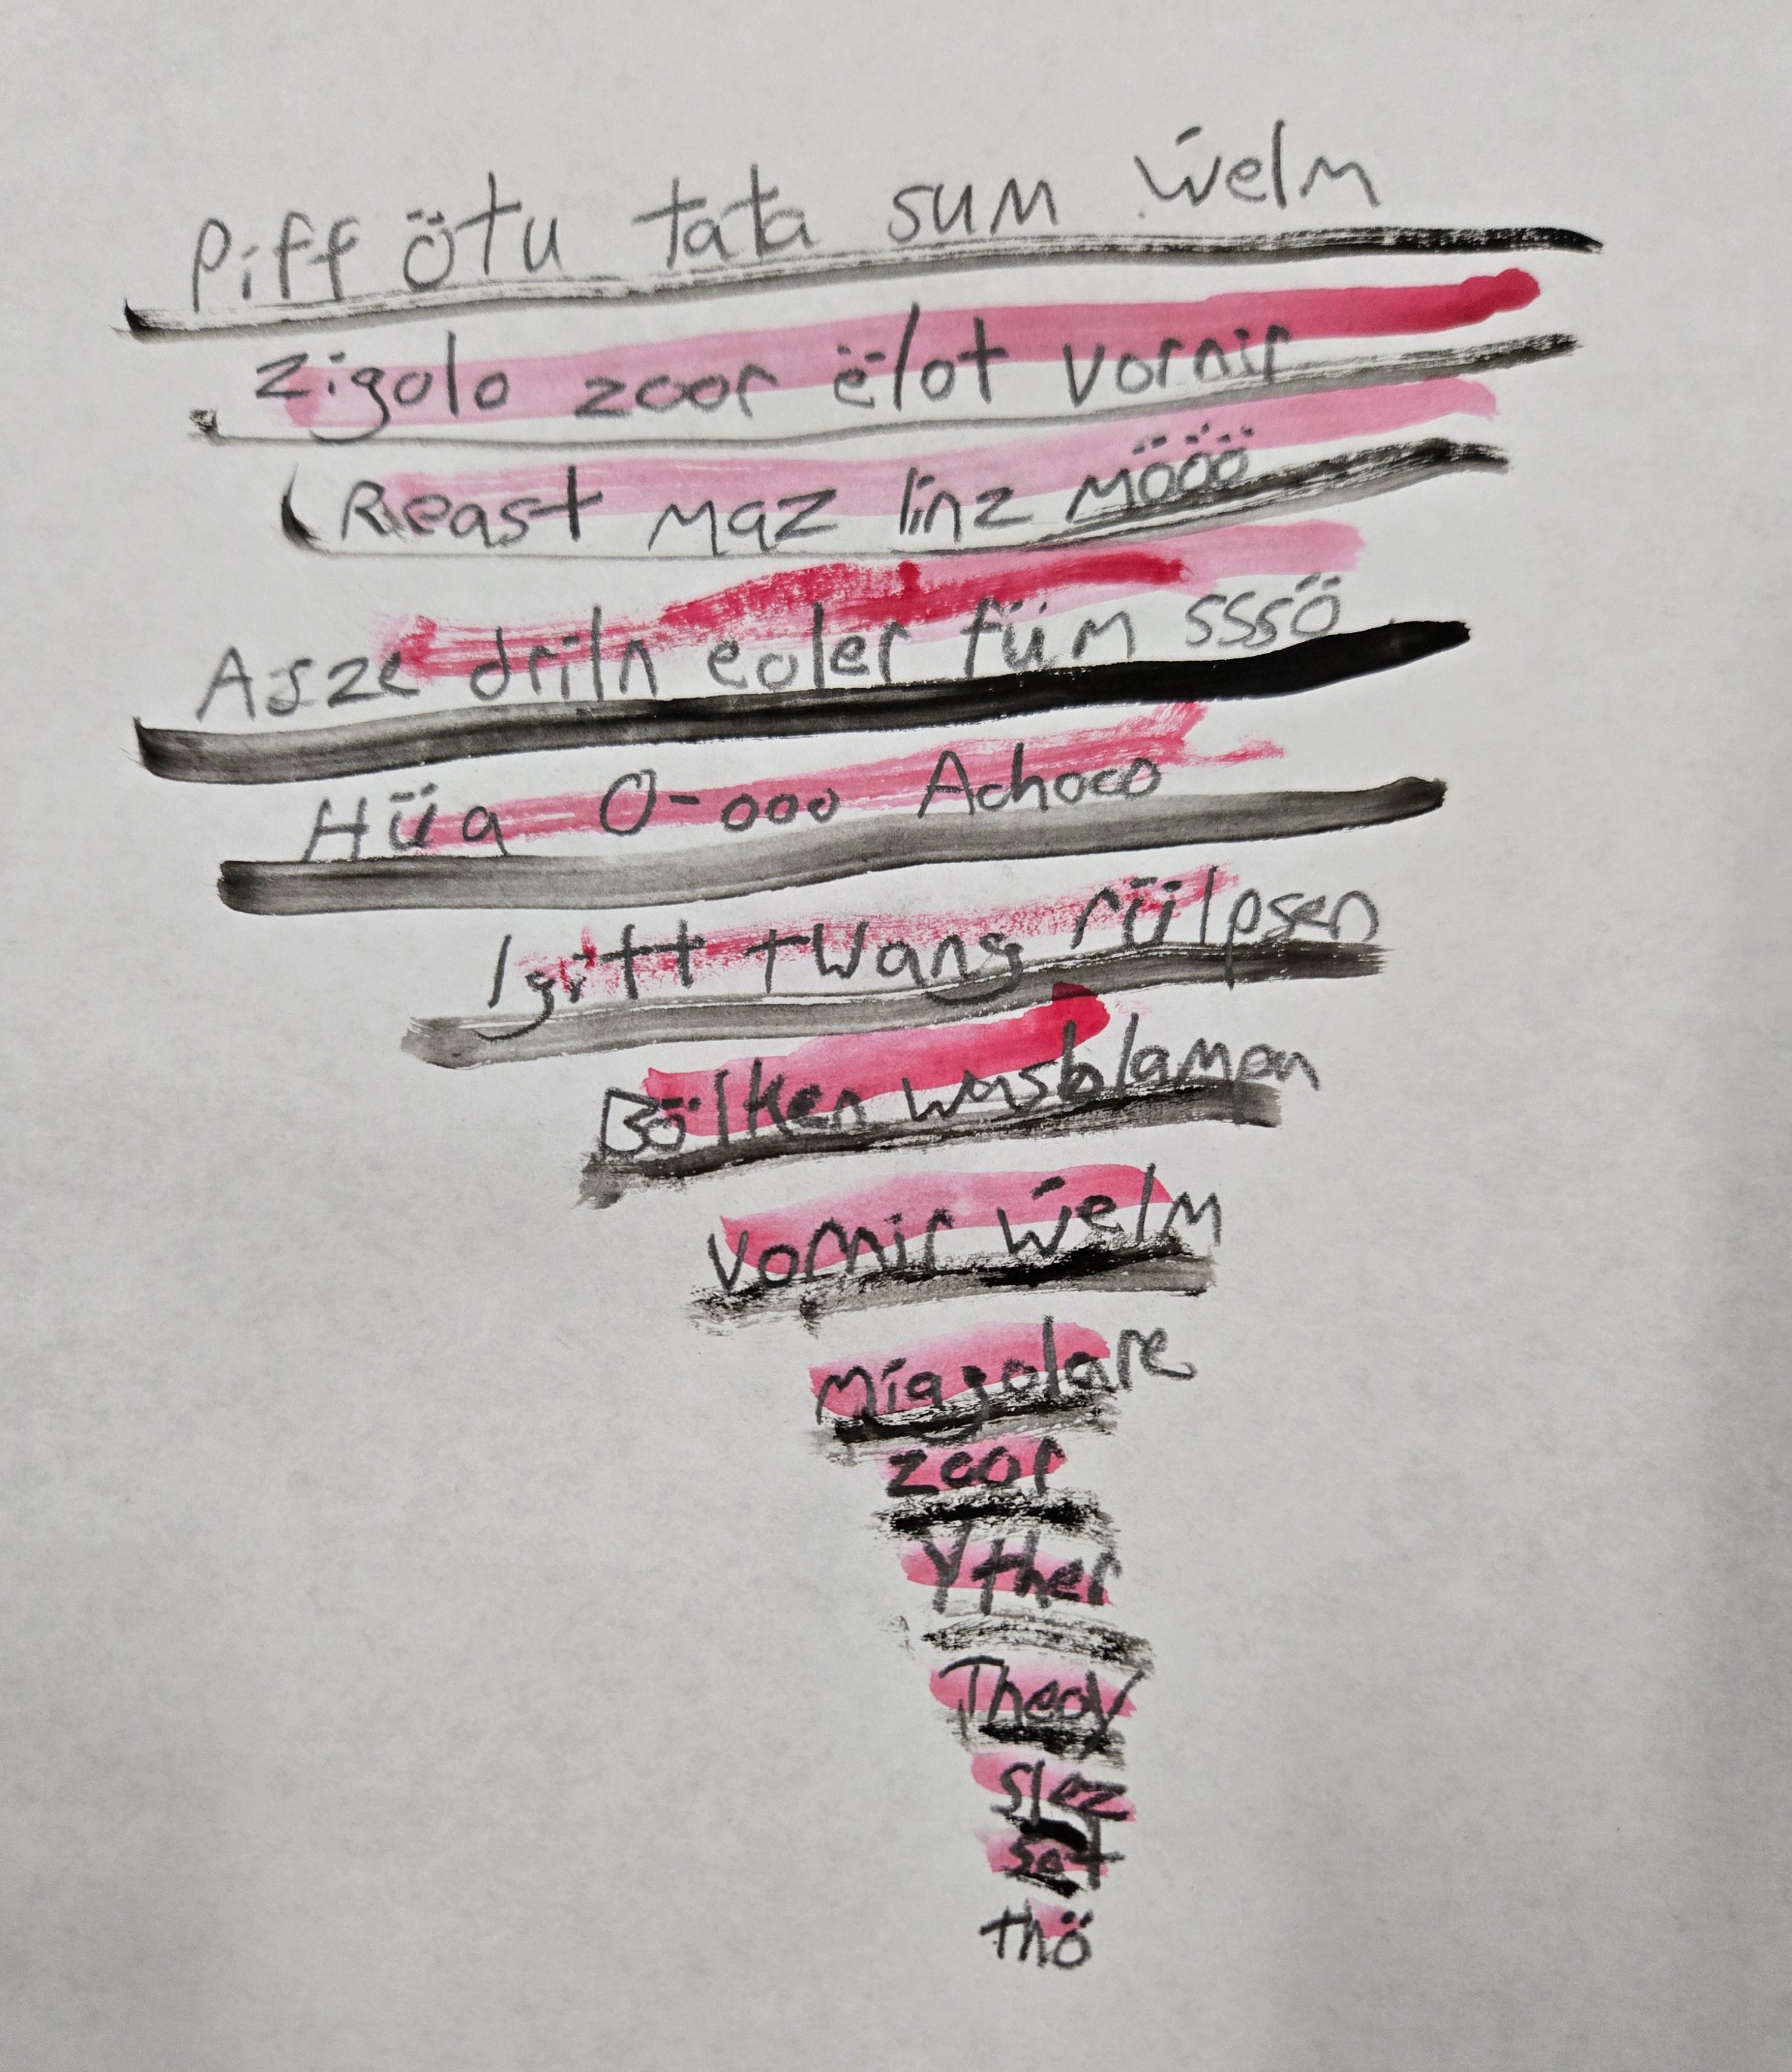 Piff ötu tata sum ẅelm
Zigolo zoor ëlot vornir
Reast maz linz möööö
Asze driln eoler füm sssö
Hüa O-ooo Achoco
Igitt twang rülpsen
Bölken wusblampen
vornir ẅelm
Miagolare
zoor
Yther
Theoy
slez
set
thö